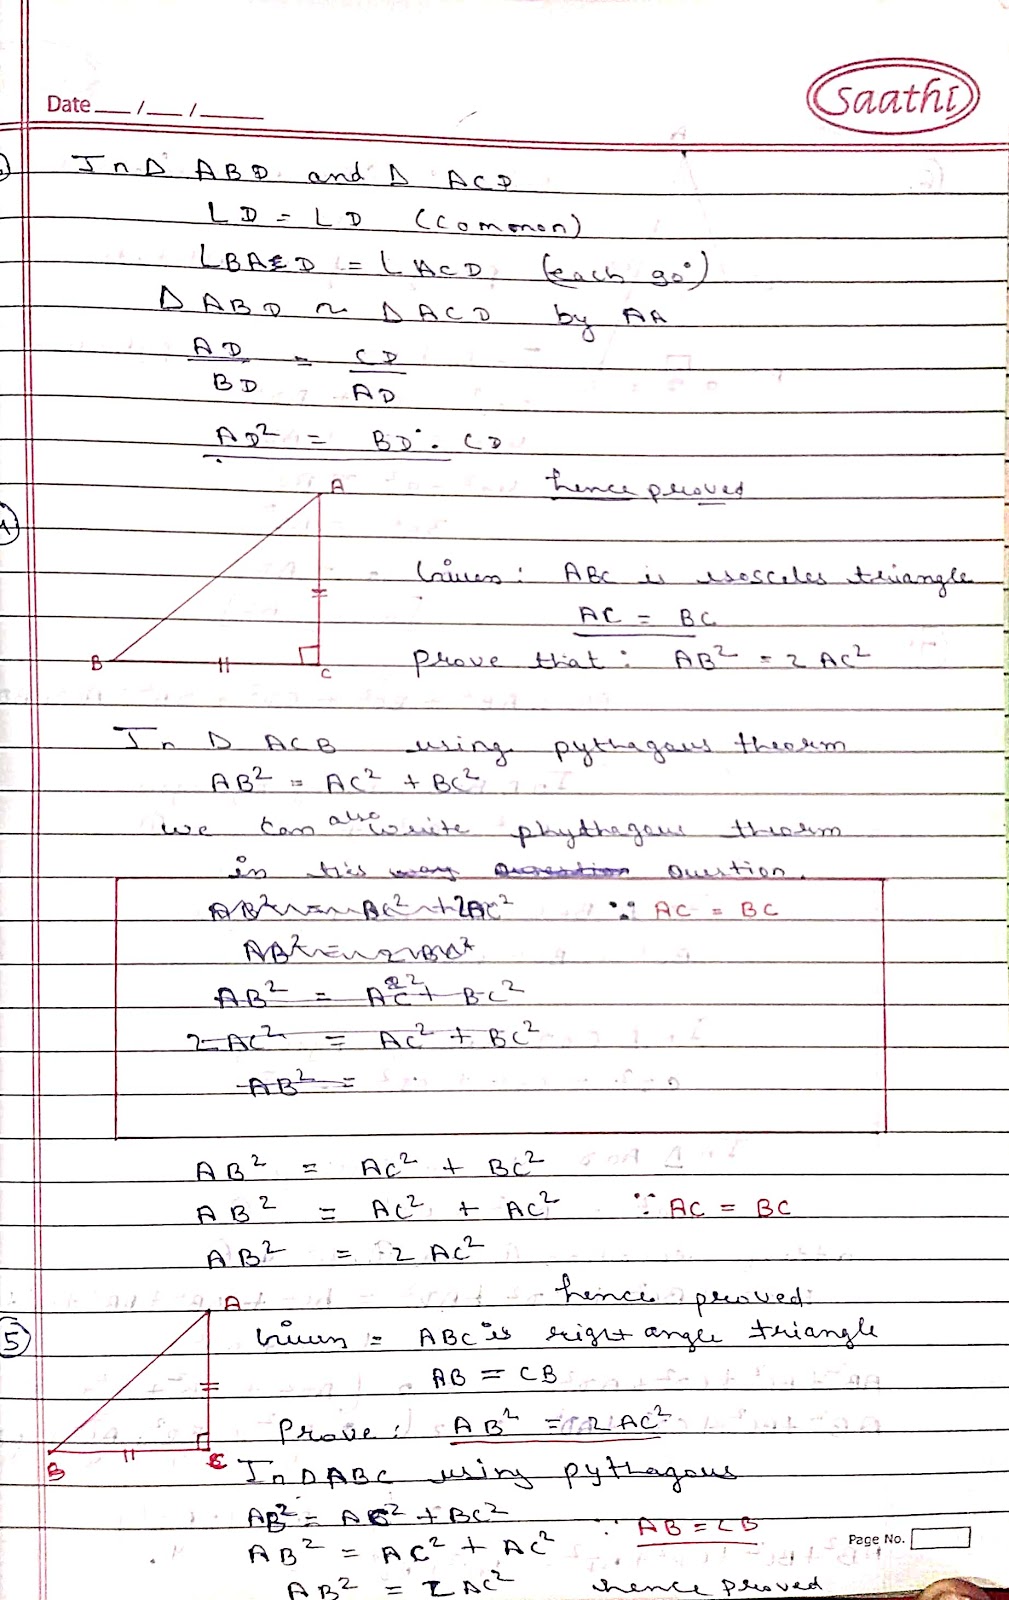 saathi
Date __/__/____
In Δ ABD and Δ ACD
∠D = ∠D (common)
∠BAD = ∠ACD (each 90°)
Δ ABD ~ Δ ACD by AA
AD/BD = CD/AD
AD² = BD . CD
hence proved
A
B
C
Given : ABC is isosceles triangle
AC = BC
Prove that : AB² = 2 AC²
In Δ ACB using pythagous theorm
AB² = AC² + BC²
we can also write phythagous theorm
in this Question.
∵ AC = BC
AB² = AC² + BC²
2 AC² = AC² + BC²
AB² =
AB² = AC² + BC²
AB² = AC² + AC² ∵ AC = BC
AB² = 2 AC²
hence proved.
5
A
B
C
Given = ABC is right angle triangle
AB = CB
Prove : AB² = 2 AC²
In Δ ABC using pythagous
AB² = AC² + BC²
∵ AB = CB
AB² = AC² + AC²
AB² = 2 AC² hence proved
Page No.